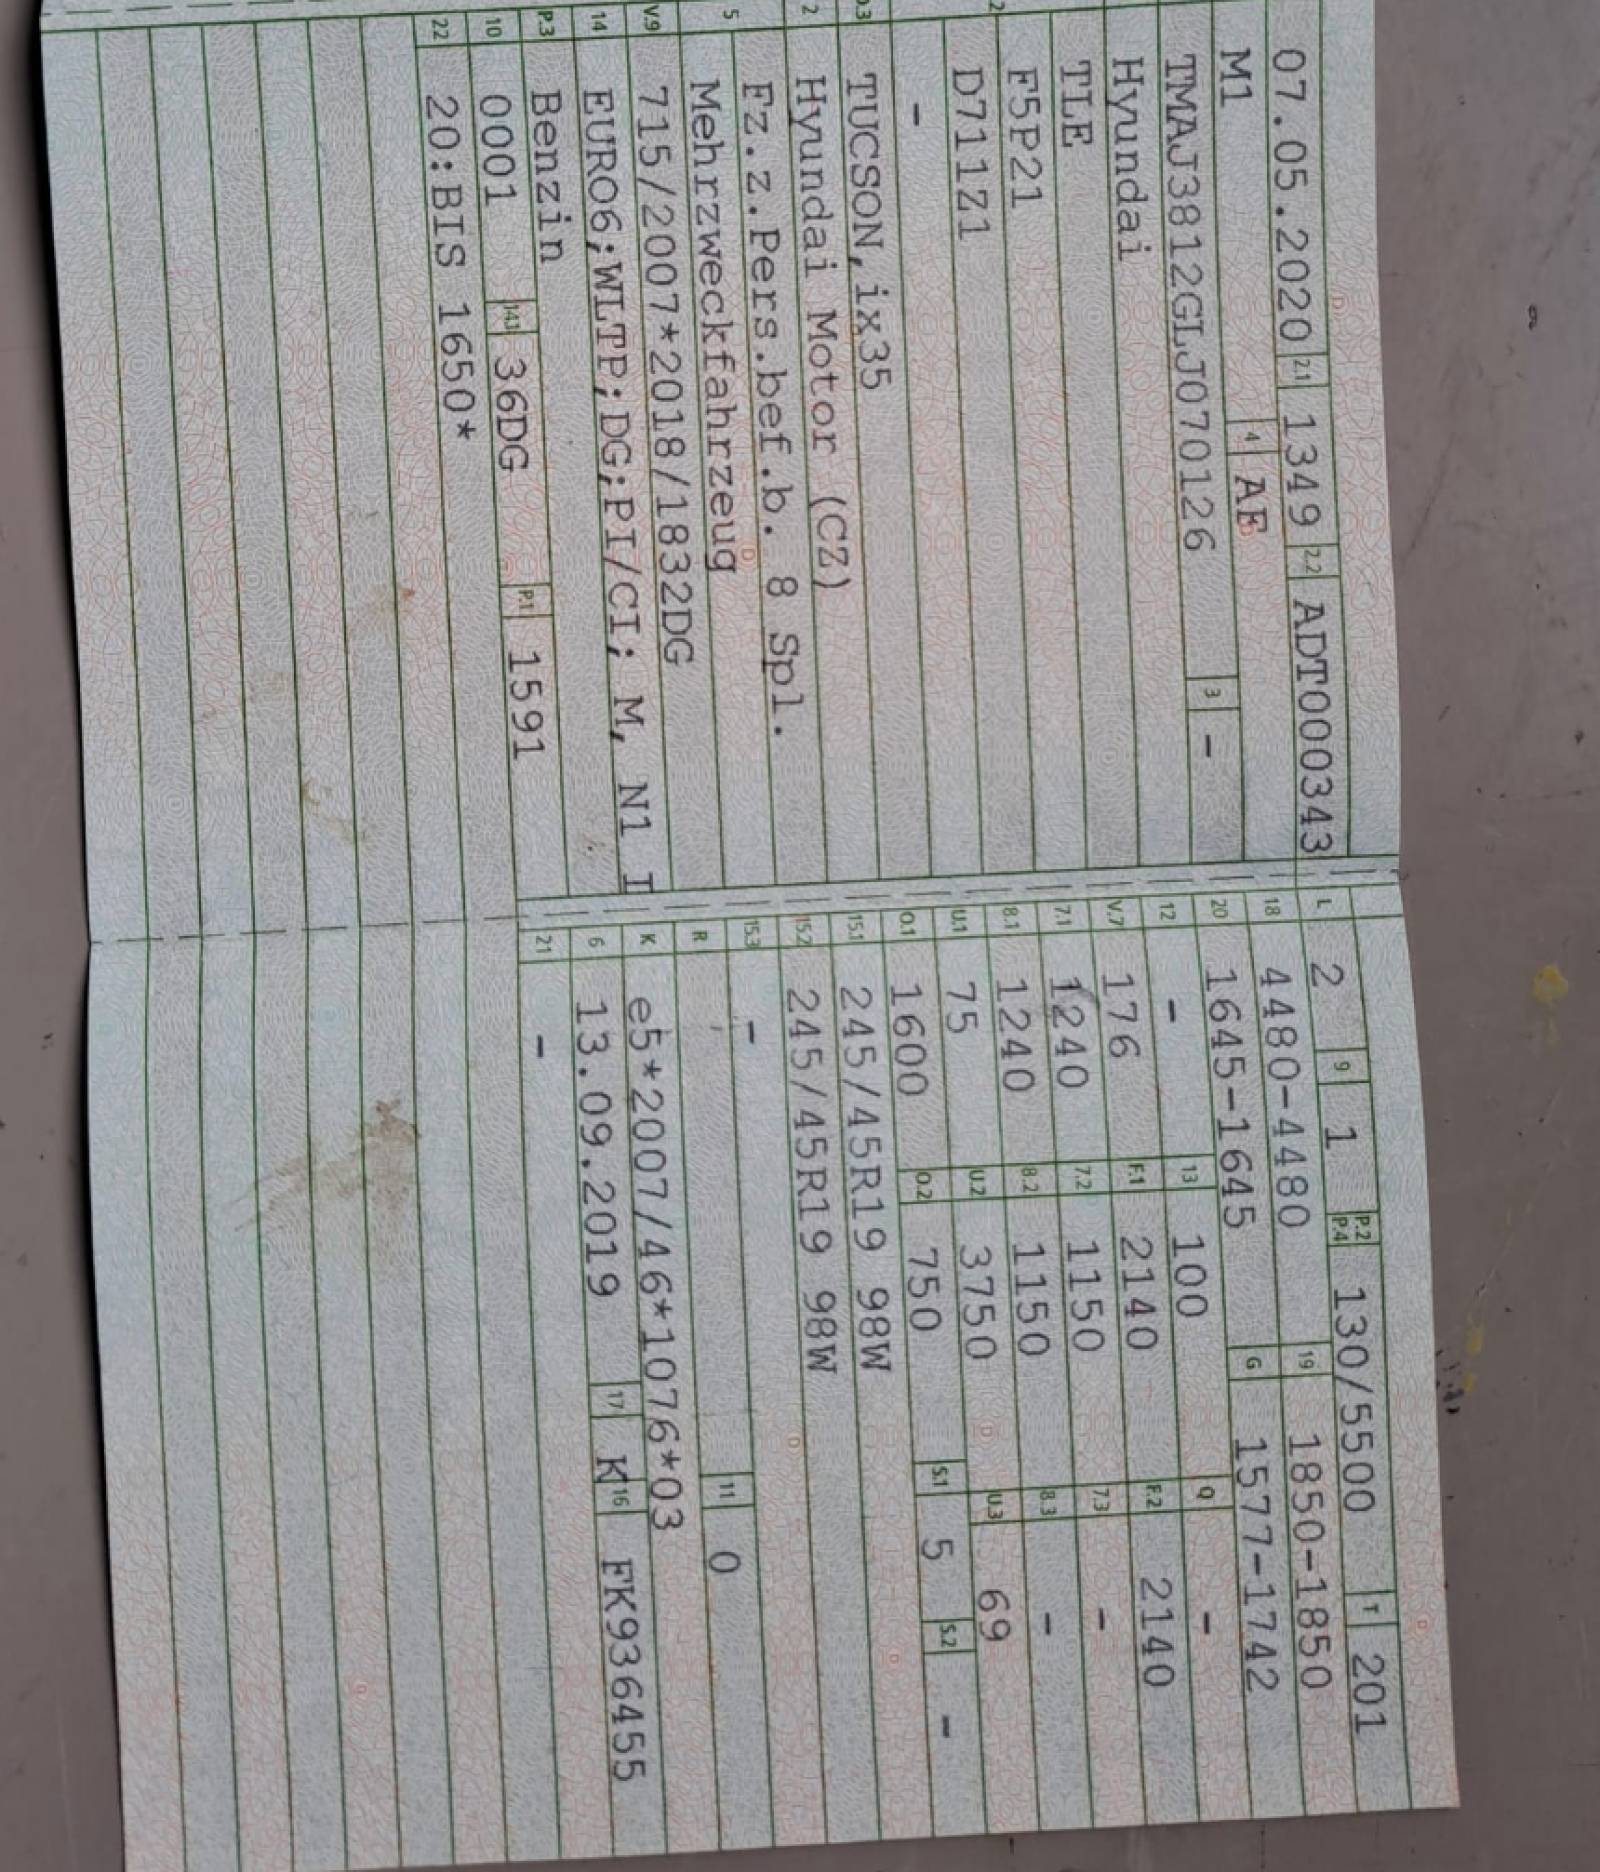 07.05.2020 2.1 1349 2.2 ADT000343
M1 4 AF
TMAJ3812GLJ070126 3 -
Hyundai
TLE
F5P21
D711Z1
-
D.3 TUCSON,ix35
2 Hyundai Motor (CZ)
5 Fz.z.Pers.bef.b. 8 Spl.
Mehrzweckfahrzeug
V.9 715/2007*2018/1832DG
14 EURO6;WLTP;DG;PI/CI; M, N1 I
P.3 Benzin
10 0001 14.1 36DG P.1 1591
22 20:BIS 1650*
L 2 9 1 P.2 P.4 130/5500 T 201
18 4480-4480 19 1850-1850
20 1645-1645 G 1577-1742
12 - 13 100 Q -
V.7 176 F.1 2140 F.2 2140
7.1 1240 7.2 1150 7.3 -
8.1 1240 8.2 1150 8.3 -
U.1 75 U.2 3750 U.3 69
O.1 1600 O.2 750 S.1 5 S.2 -
15.1 245/45R19 98W
15.2 245/45R19 98W
15.3 -
R 11 0
K e5*2007/46*1076*03
6 13.09.2019 17 K 16 FK936455
21 -